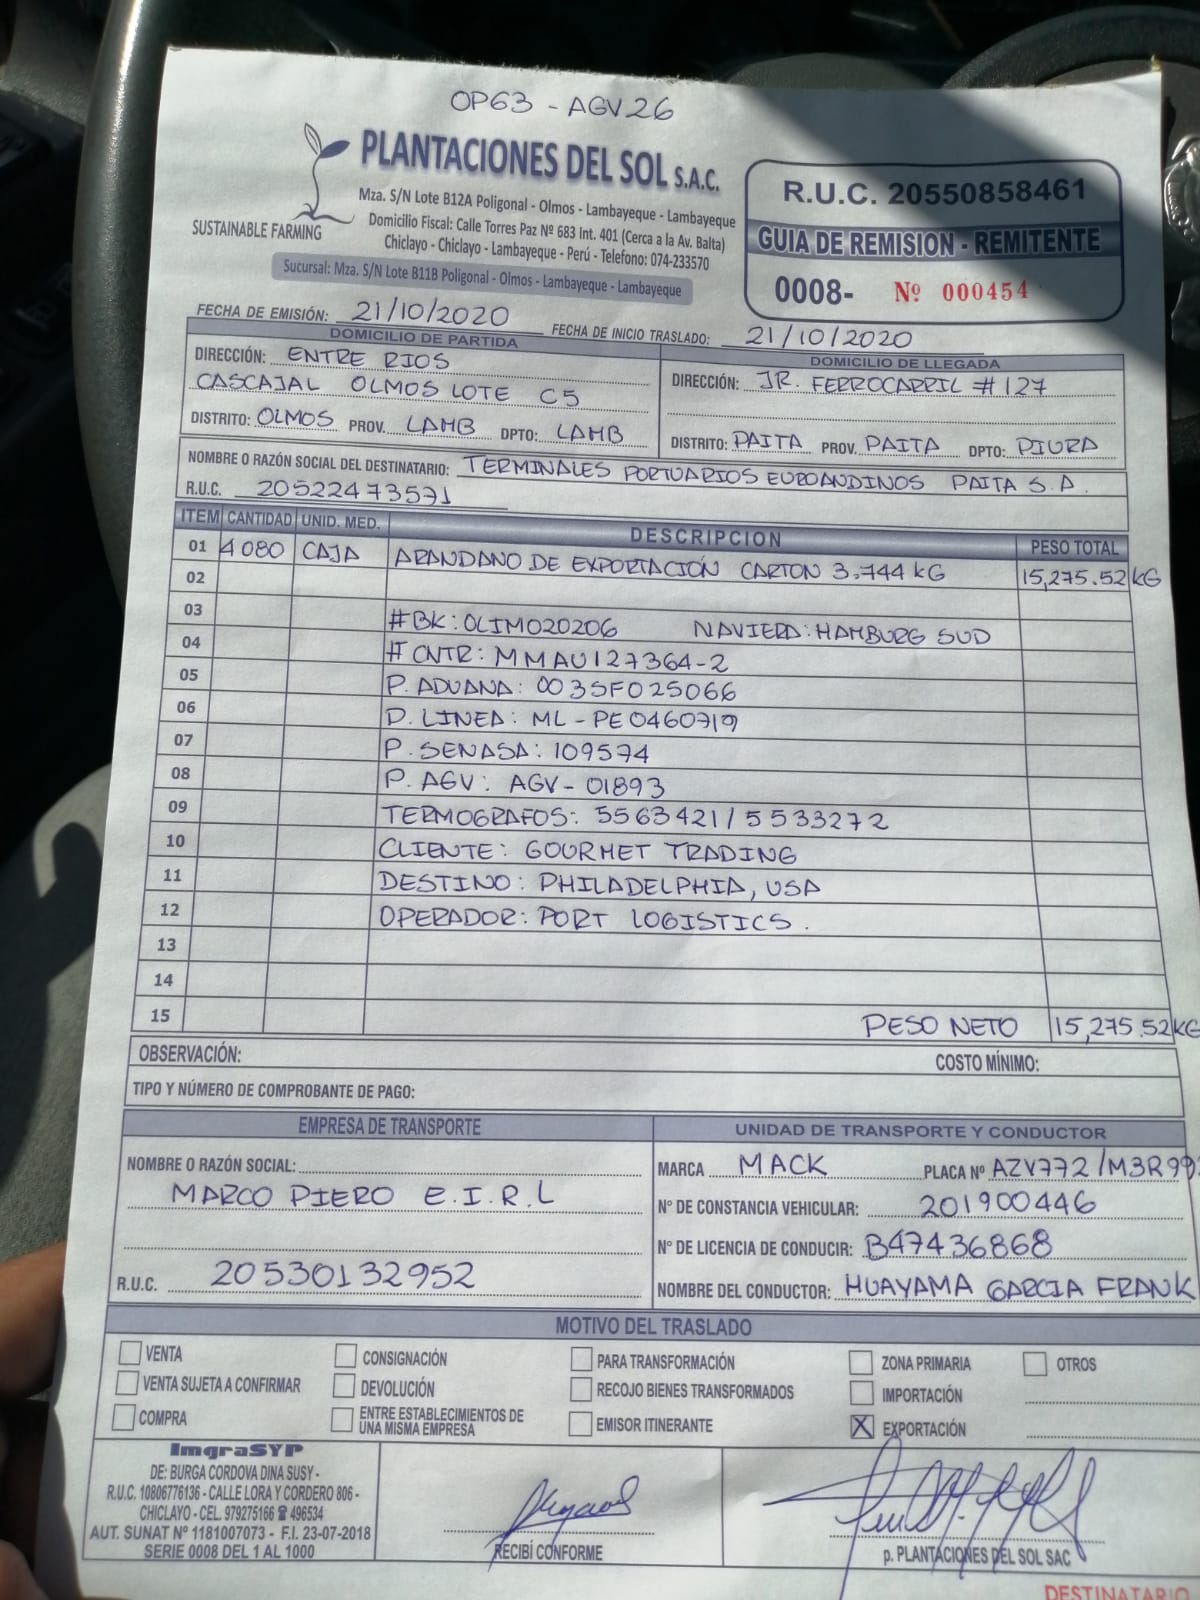 OP63 - AGV26
PLANTACIONES DEL SOL S.A.C.
SUSTAINABLE FARMING
Mza. S/N Lote B12A Poligonal - Olmos - Lambayeque - Lambayeque
Domicilio Fiscal: Calle Torres Paz Nº 683 Int. 401 (Cerca a la Av. Balta)
Chiclayo - Chiclayo - Lambayeque - Perú - Telefono: 074-233570
Sucursal: Mza. S/N Lote B11B Poligonal - Olmos - Lambayeque - Lambayeque
R.U.C. 20550858461
GUIA DE REMISION - REMITENTE
0008- Nº 000454
FECHA DE EMISIÓN: 21/10/2020 FECHA DE INICIO TRASLADO: 21/10/2020
DOMICILIO DE PARTIDA
DIRECCIÓN: ENTRE RIOS
CASCAJAL OLMOS LOTE C5
DISTRITO: OLMOS PROV. LAMB DPTO: LAMB
DOMICILIO DE LLEGADA
DIRECCIÓN: JR. FERROCARRIL # 127
DISTRITO: PAITA PROV. PAITA DPTO: PIURA
NOMBRE O RAZÓN SOCIAL DEL DESTINATARIO: TERMINALES PORTUARIOS EUROANDINOS PAITA S.A.
R.U.C. 20522473571
ITEM CANTIDAD UNID. MED. DESCRIPCION PESO TOTAL
01 4080 CAJA ARANDANO DE EXPORTACIÓN CARTON 3.744 KG 15,275.52 KG
02
03 #BK: OLIM020206 NAVIERA: HAMBURG SUD
04 # CNTR: MMAU127364-2
05 P. ADUANA: 003SF025066
06 P. LINEA: ML - PE0460719
07 P. SENASA: 109574
08 P. AGV: AGV- 01893
09 TERMOGRAFOS: 5563421 / 5533272
10 CLIENTE: GOURMET TRADING
11 DESTINO: PHILADELPHIA, USA
12 OPERADOR: PORT LOGISTICS.
13
14
15 PESO NETO 15,275.52 KG
OBSERVACIÓN: COSTO MÍNIMO:
TIPO Y NÚMERO DE COMPROBANTE DE PAGO:
EMPRESA DE TRANSPORTE
NOMBRE O RAZÓN SOCIAL:
MARCO PIERO E.I.R.L
R.U.C. 20530132952
UNIDAD DE TRANSPORTE Y CONDUCTOR
MARCA MACK PLACA Nº AZV772 / M3R99
Nº DE CONSTANCIA VEHICULAR: 201900446
Nº DE LICENCIA DE CONDUCIR: B47436868
NOMBRE DEL CONDUCTOR: HUAYAMA GARCIA FRANK
MOTIVO DEL TRASLADO
VENTA CONSIGNACIÓN PARA TRANSFORMACIÓN ZONA PRIMARIA OTROS
VENTA SUJETA A CONFIRMAR DEVOLUCIÓN RECOJO BIENES TRANSFORMADOS IMPORTACIÓN
COMPRA ENTRE ESTABLECIMIENTOS DE UNA MISMA EMPRESA EMISOR ITINERANTE X EXPORTACIÓN
ImgraSYP
DE: BURGA CORDOVA DINA SUSY -
R.U.C. 10806776136 - CALLE LORA Y CORDERO 806 -
CHICLAYO - CEL. 979275166 ☎ 496534
AUT. SUNAT Nº 1181007073 - F.I. 23-07-2018
SERIE 0008 DEL 1 AL 1000
RECIBÍ CONFORME
p. PLANTACIONES DEL SOL SAC
DESTINATARIO